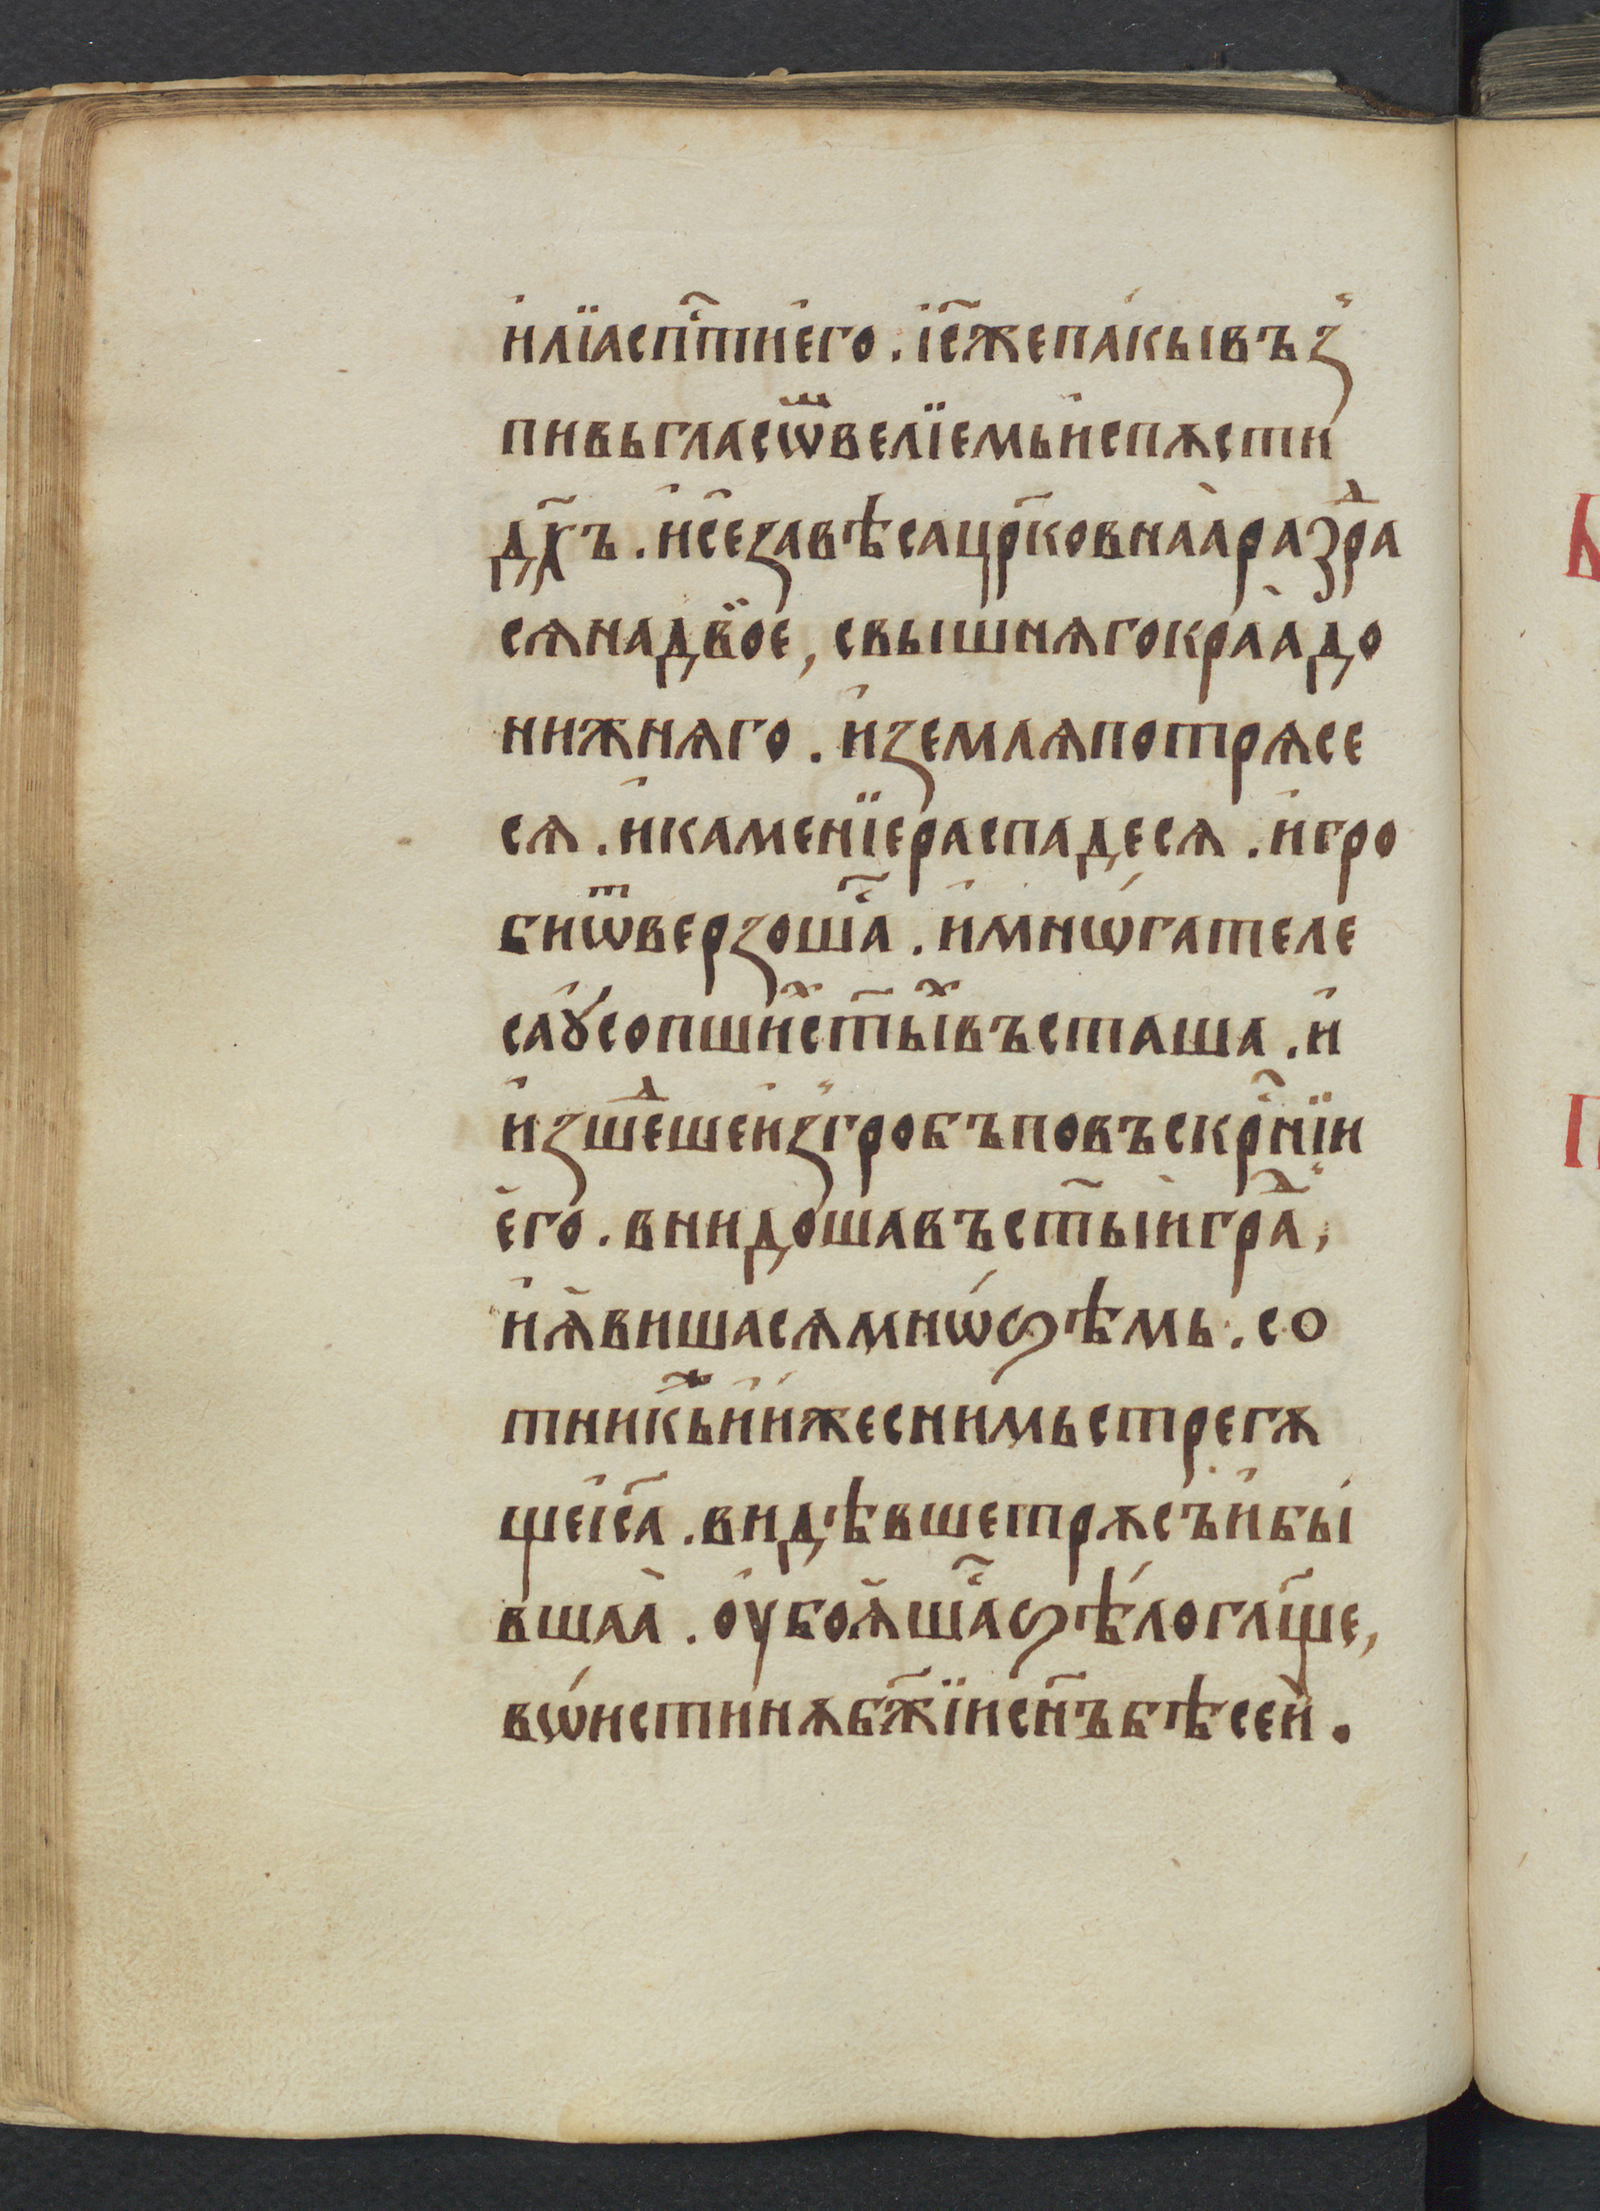 и҆лїа сп҃сти е҆го . і҆с҃ же пакы въз
пивь гласѡⷨ велїемь и҆спѫсти
дх҃ъ . и҆ се завѣса цр҃ковнаа разⷣра
сѧ на двое , с вышнѧго краа до
нижнѧго . и҆ землѧ потрѧсе
сѧ . и҆ каменїе распадесѧ . и҆ гро
би ѿверзошаⷭ . и҆ мнѡга теле
са ꙋсопшиⷯ ст҃ыⷯ въсташа . и҆
и҆зшеⷣше из гробъ по въскрⷭнїи
е҆го . внидоша въ ст҃ыи граⷣ ,
и҆ ꙗвишасѧ мнѡѕѣмь . со
тникь и҆ и҆же с нимь стрегѫ
ще і҆с҃а . видѣвше трѫсъ и҆ бы
вшаа . оубоꙗшаⷭ ѕѣло гл҃ще ,
вѡистинѫ бж҃їи сн҃ъ бѣ сеи .